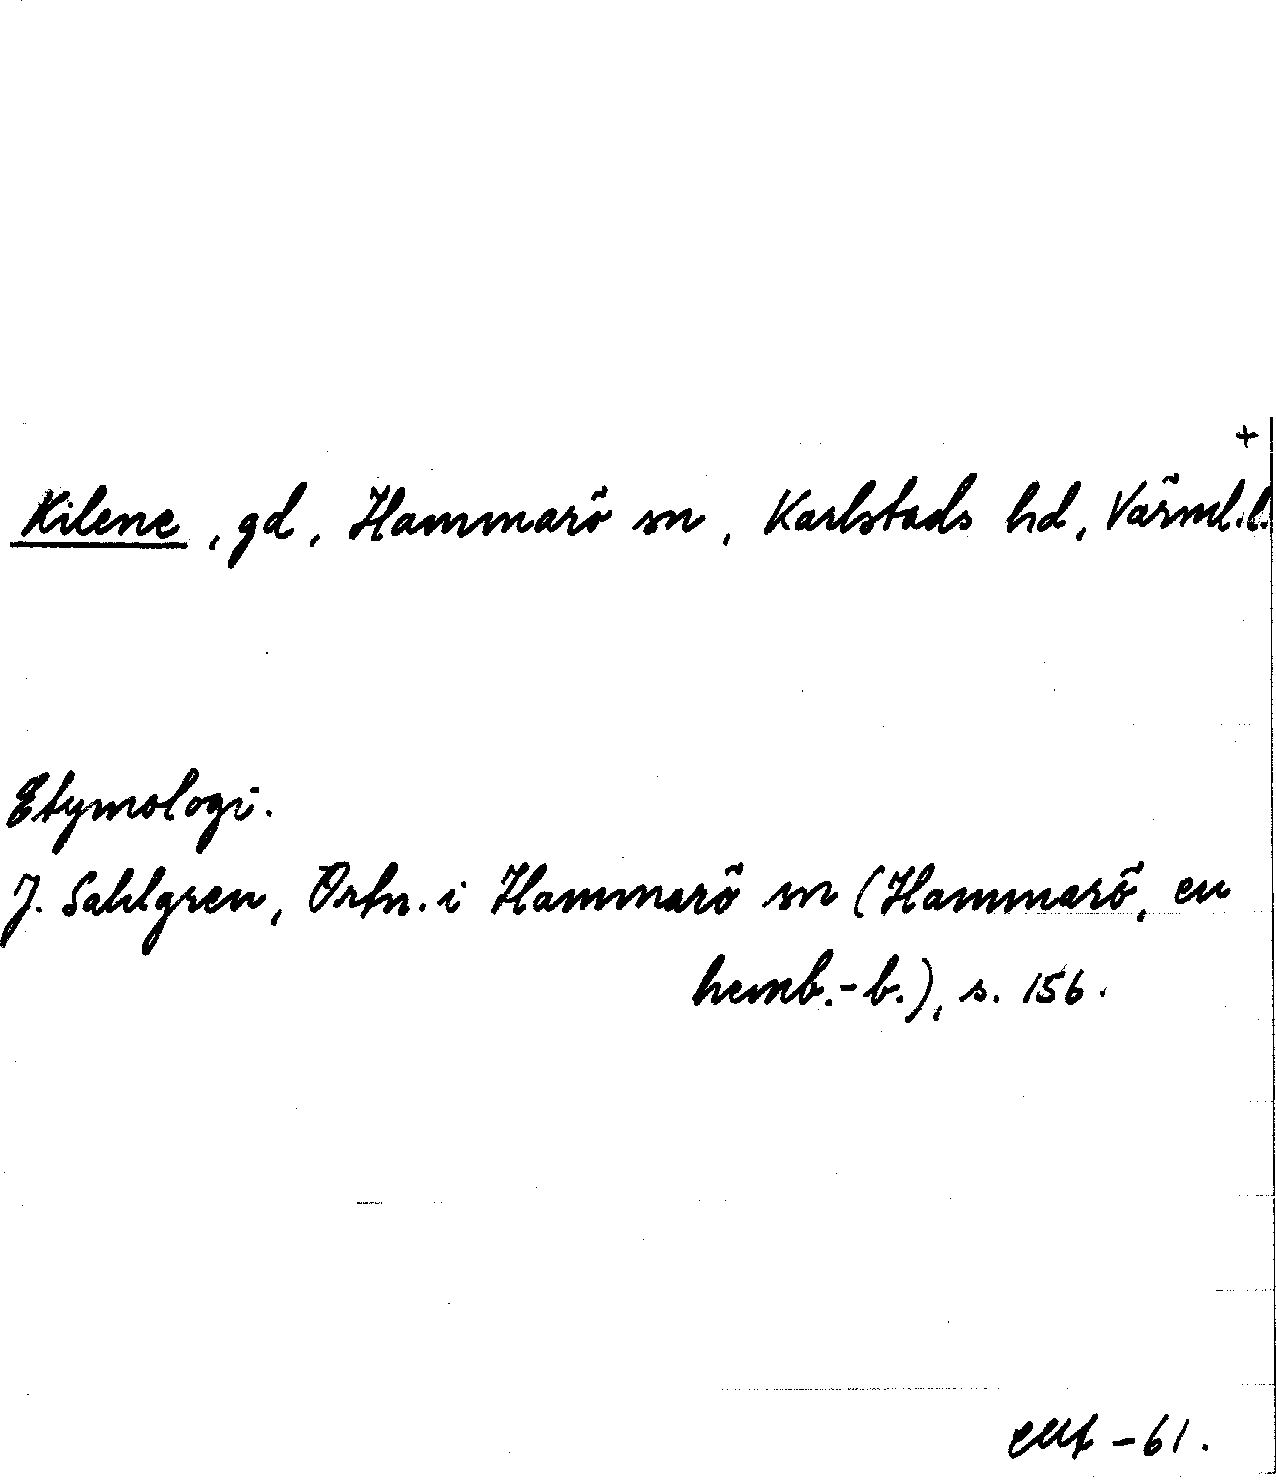 +
Kilene, gd, Hammarö sn, Karlstads hd, Värml. l.
Etymologi.
J. Sahlgren, Ortn. i Hammarö sn (Hammarö, en
hemb.-b.), s. 156.
-61.